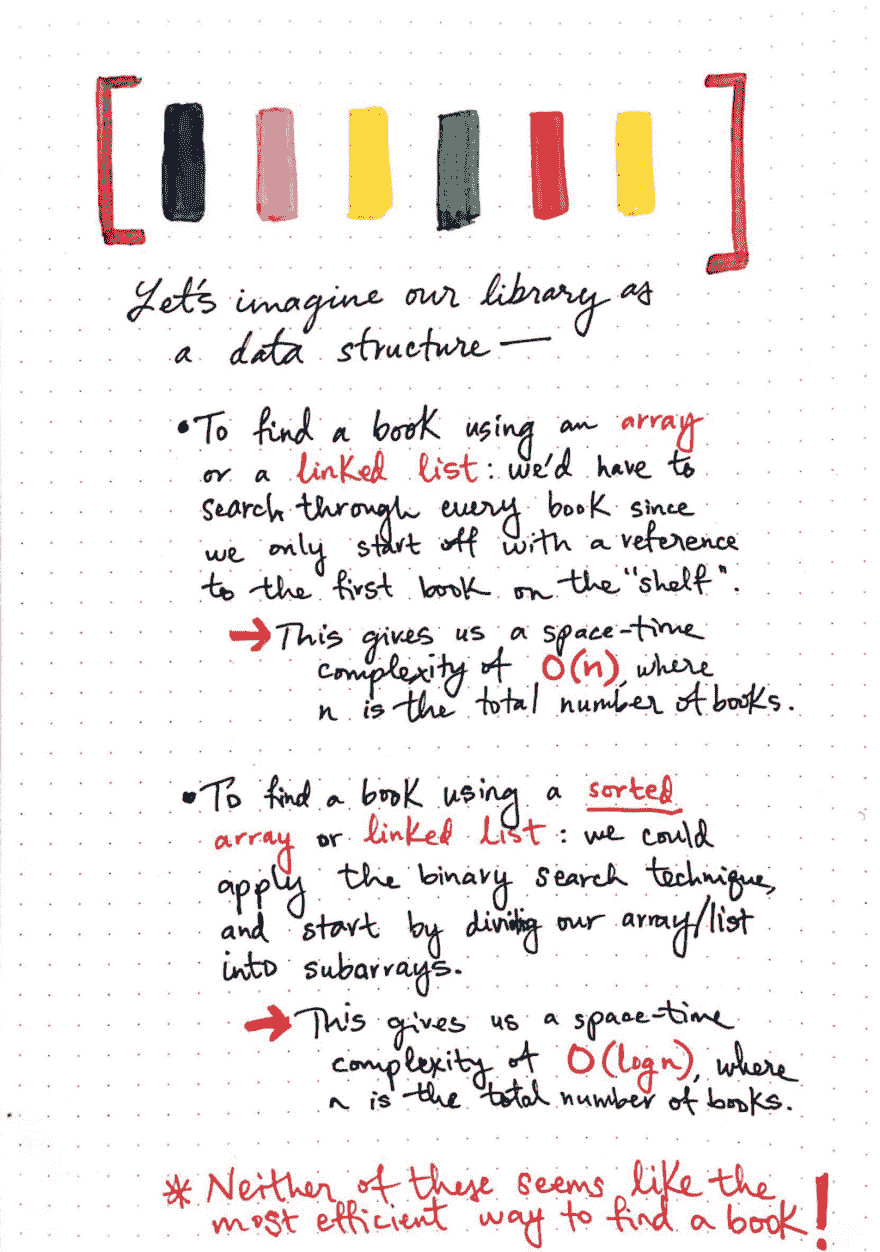 Let's imagine our library as
a data structure —
• To find a book using an array
or a linked list: we'd have to
search through every book since
we only start off with a reference
to the first book on the "shelf".
→ This gives us a space-time
complexity of O(n), where
n is the total number of books.
• To find a book using a sorted
array or linked list: we could
apply the binary search technique,
and start by dividing our array/list
into subarrays.
→ This gives us a space-time
complexity of O(log n), where
n is the total number of books.
* Neither of these seems like the
most efficient way to find a book!